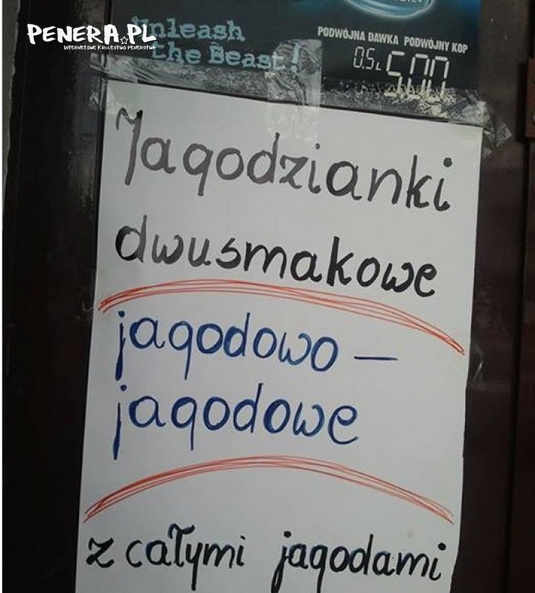 PENERA.PL
INTERNETOWE KRÓLESTWO PENERSTWA
Unleash
the Beast!
PODWÓJNA DAWKA PODWÓJNY KOP
0.5L 5.00
Jagodzianki
dwusmakowe
jagodowo –
jagodowe
z całymi jagodami